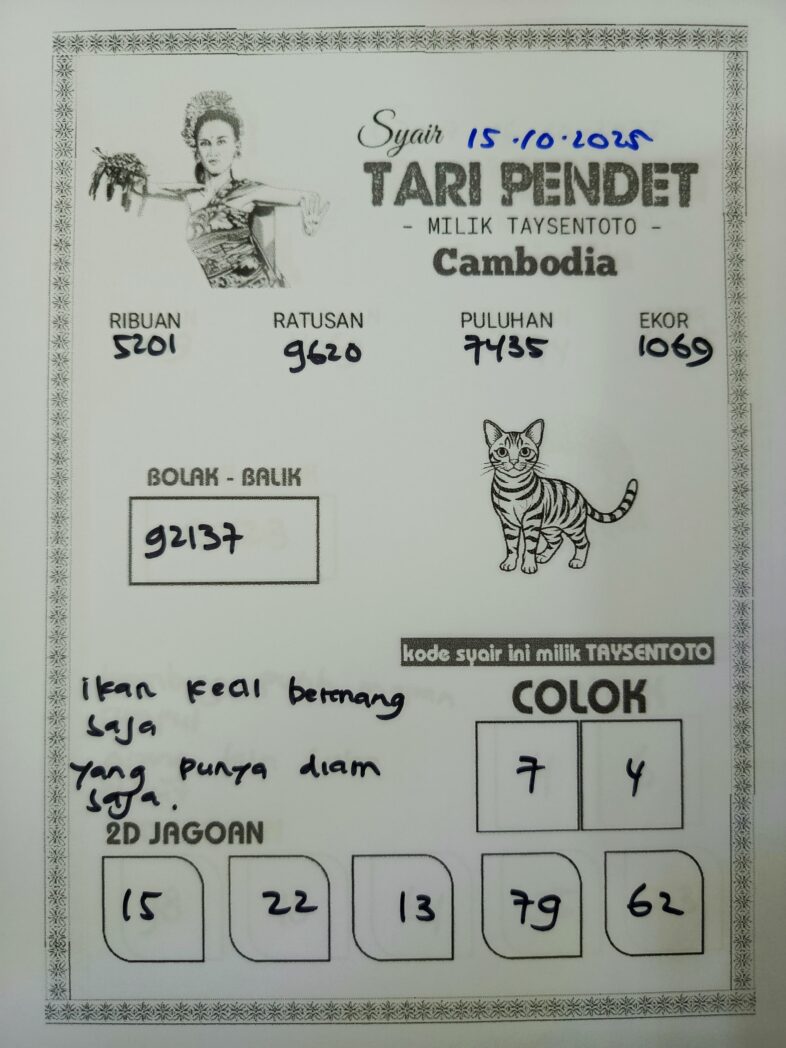 Syair 15.10.2025
TARI PENDET
- MILIK TAYSENTOTO -
Cambodia
RIBUAN RATUSAN PULUHAN EKOR
5201 9620 7435 1069
BOLAK - BALIK
92137
kode syair ini milik TAYSENTOTO
ikan kecil berenang
saja
yang punya diam
saja.
COLOK
7 4
2D JAGOAN
15 22 13 79 62